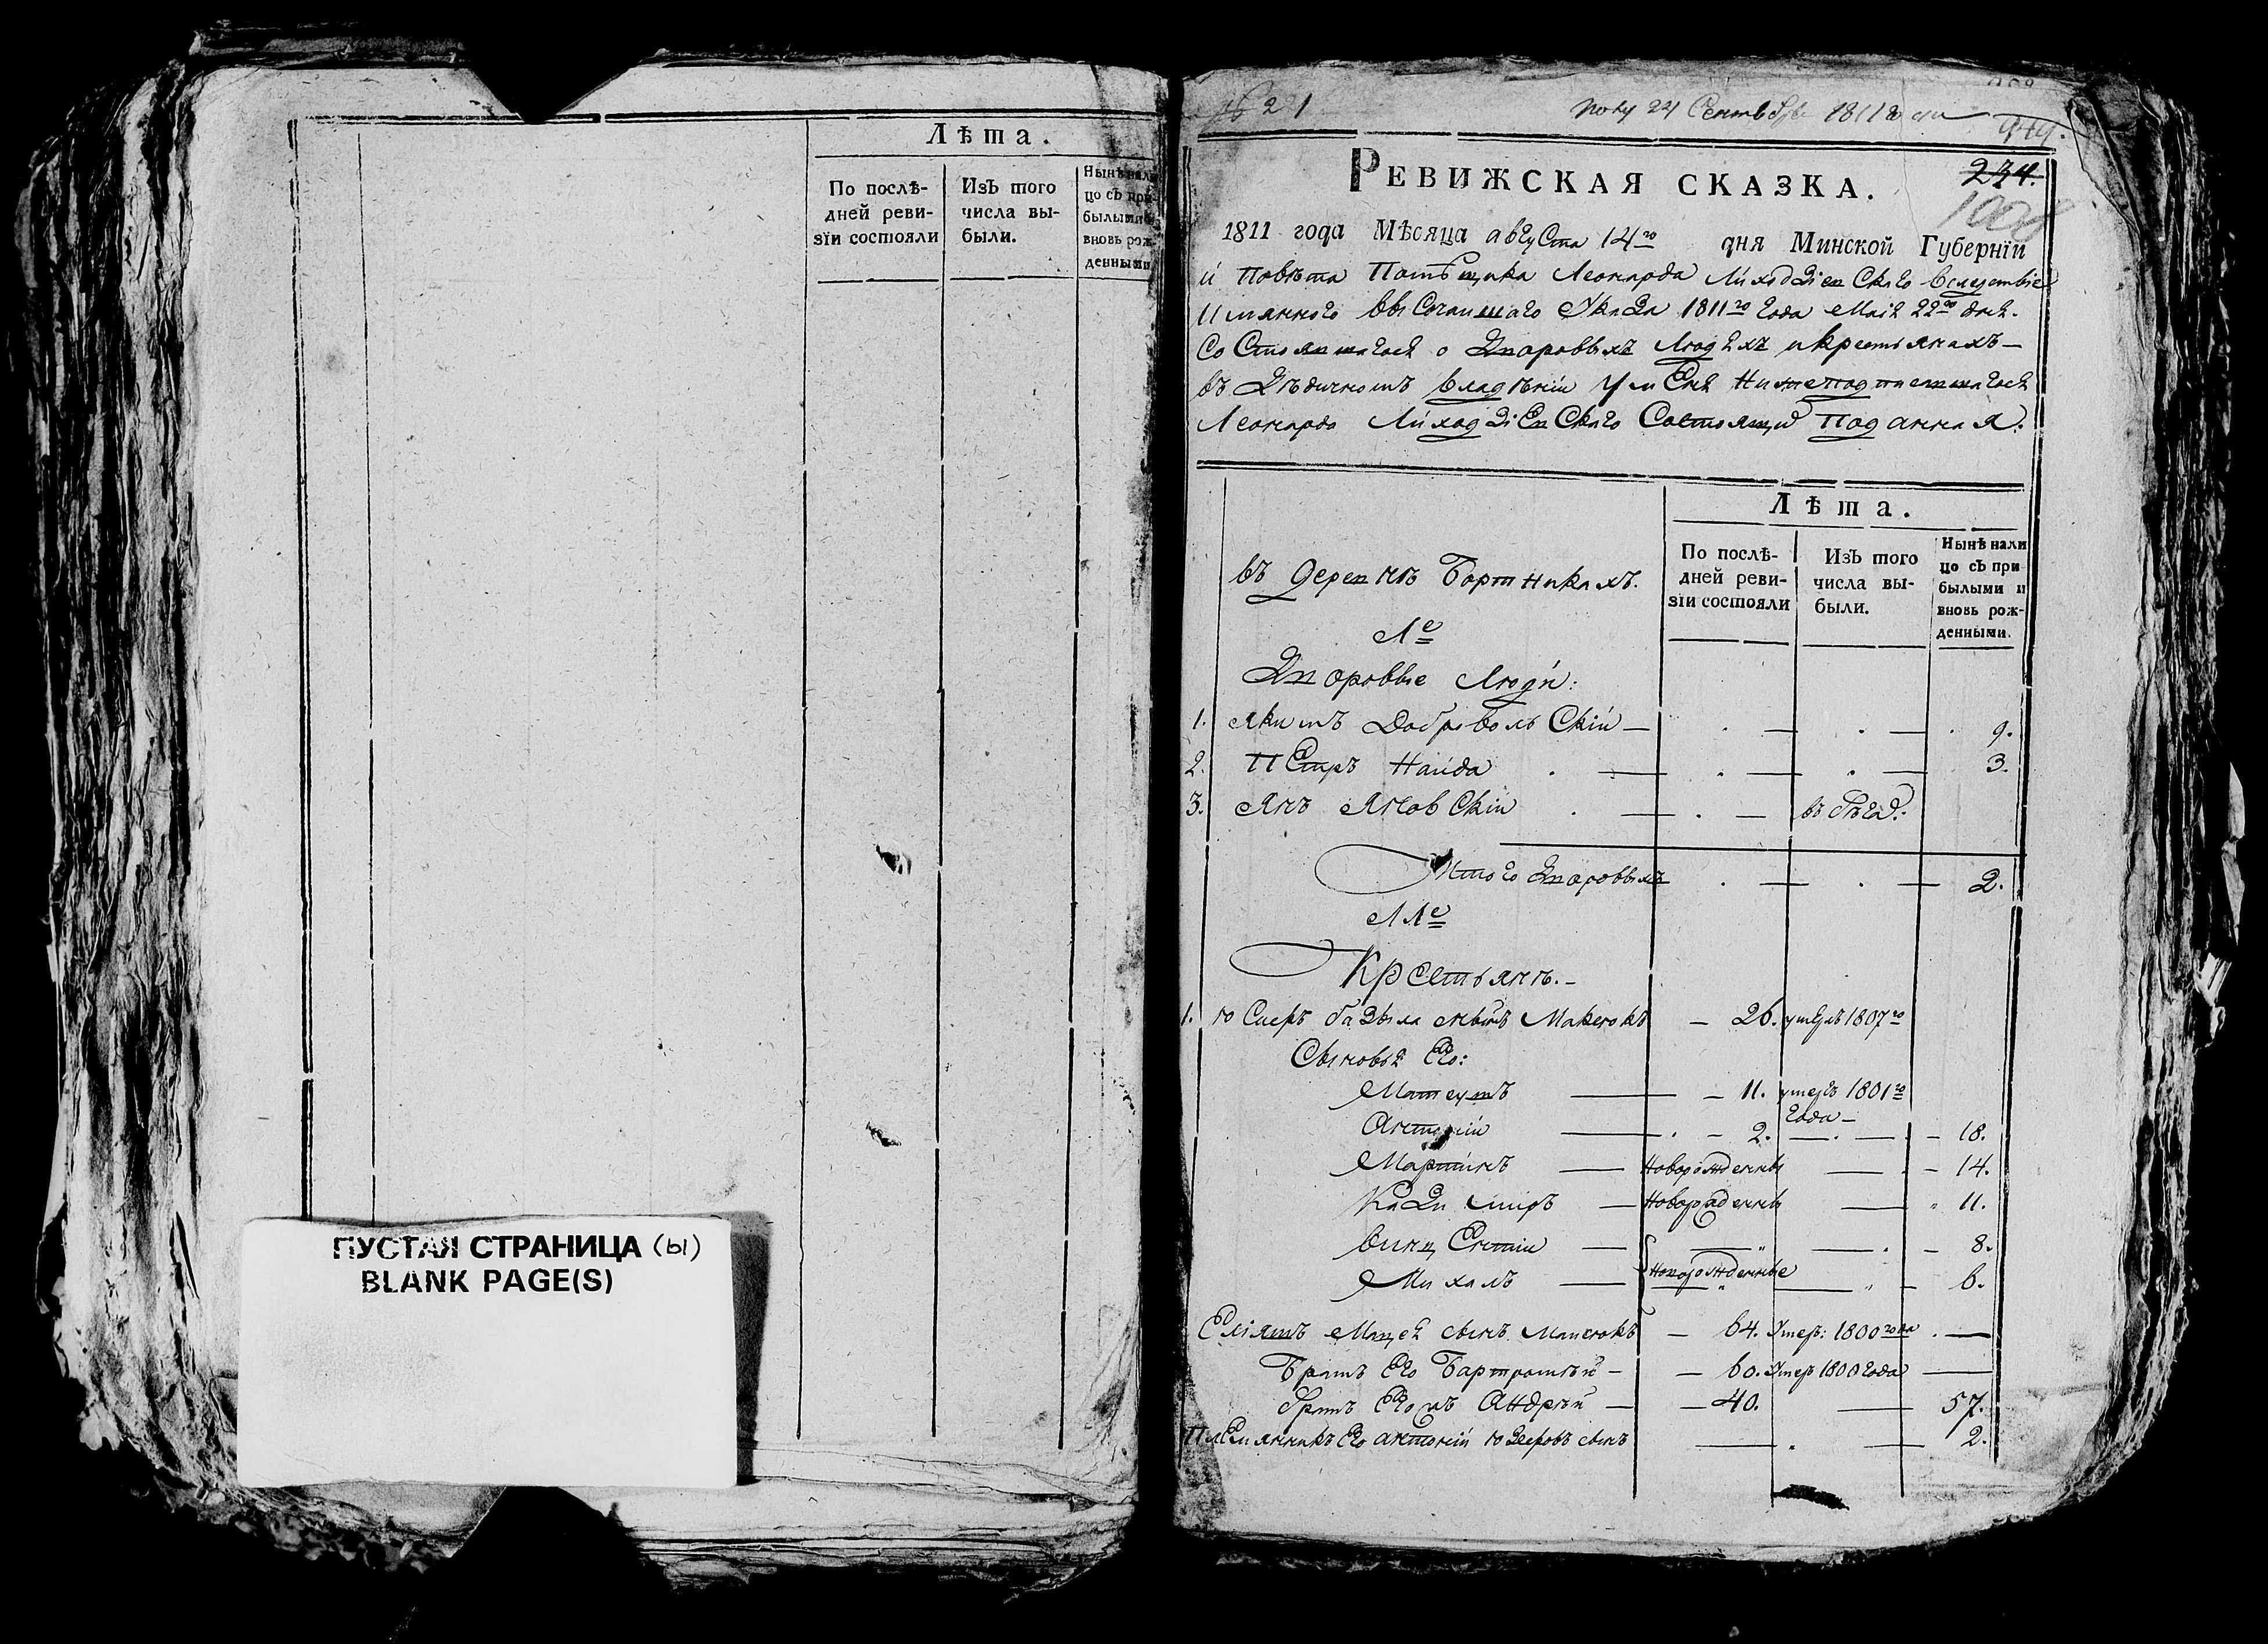 Лѣта.
По послѣ-
дней реви-
зїи состояли
Изъ того
числа вы-
были.
Нынѣ нали
цо съ при
былыми
вновь рож
денными
ПУСТАЯ СТРАНИЦА (Ы)
BLANK PAGE(S)
№ 21
24 Сентября 1811 года
949.
234.
1008
РЕВИЖСКАЯ СКАЗКА.
1811 года Мѣсяца августа 14го дня Минской Губернїи
и Повѣта Помѣщика Леонарда Лиходзіевскаго вследствіе
Имяннаго Высочайшаго Указа 1811го года Маія 22го дня.
Состоявшагося о Дворовыхъ Людяхъ и крестьянахъ
въ Дѣдичномъ владѣніи у меня нижеподписавшагося
Леонарда Лиходзіевскаго Состоящия Подданная.
Лѣта.
По послѣ-
дней реви-
зїи состояли
Изъ того
числа вы-
были.
Нынѣ нали
цо съ при
былыми и
вновь рож-
денными.
въ деревнѣ Бортникахъ.
1е
Дворовые Люди:
1. Якимъ Добровольскій — . — . — . 9.
2. Петръ Найда . — . — . — 3.
3. Янъ Яновскій . — . — въ бѣга:
Итого Дворовыхъ . — . — 2.
2е
Крестьянѣ.-
1. Юсиеръ базыля сынъ Манюкъ — 26. умеръ 1807го
Сыновья Его:
Матеушъ — 11. умеръ 1801го
года —
Антоній — 2. — 18.
Мартинъ — Новорожденны — 14.
Казимиръ — Новорожденны — 11.
Винцентій — 8.
Новорожденные
Михалъ — 6.
Еліяшъ Мацея сынъ Манюкъ — 64. Умер: 1800 года . —
Братъ Его Бартромѣй — — 60. Умер 1800 года —
братъ Его их Андрѣй — — 40. — 57.
Племянникъ Его Антоній Юзеровъ сынъ — . — 2.